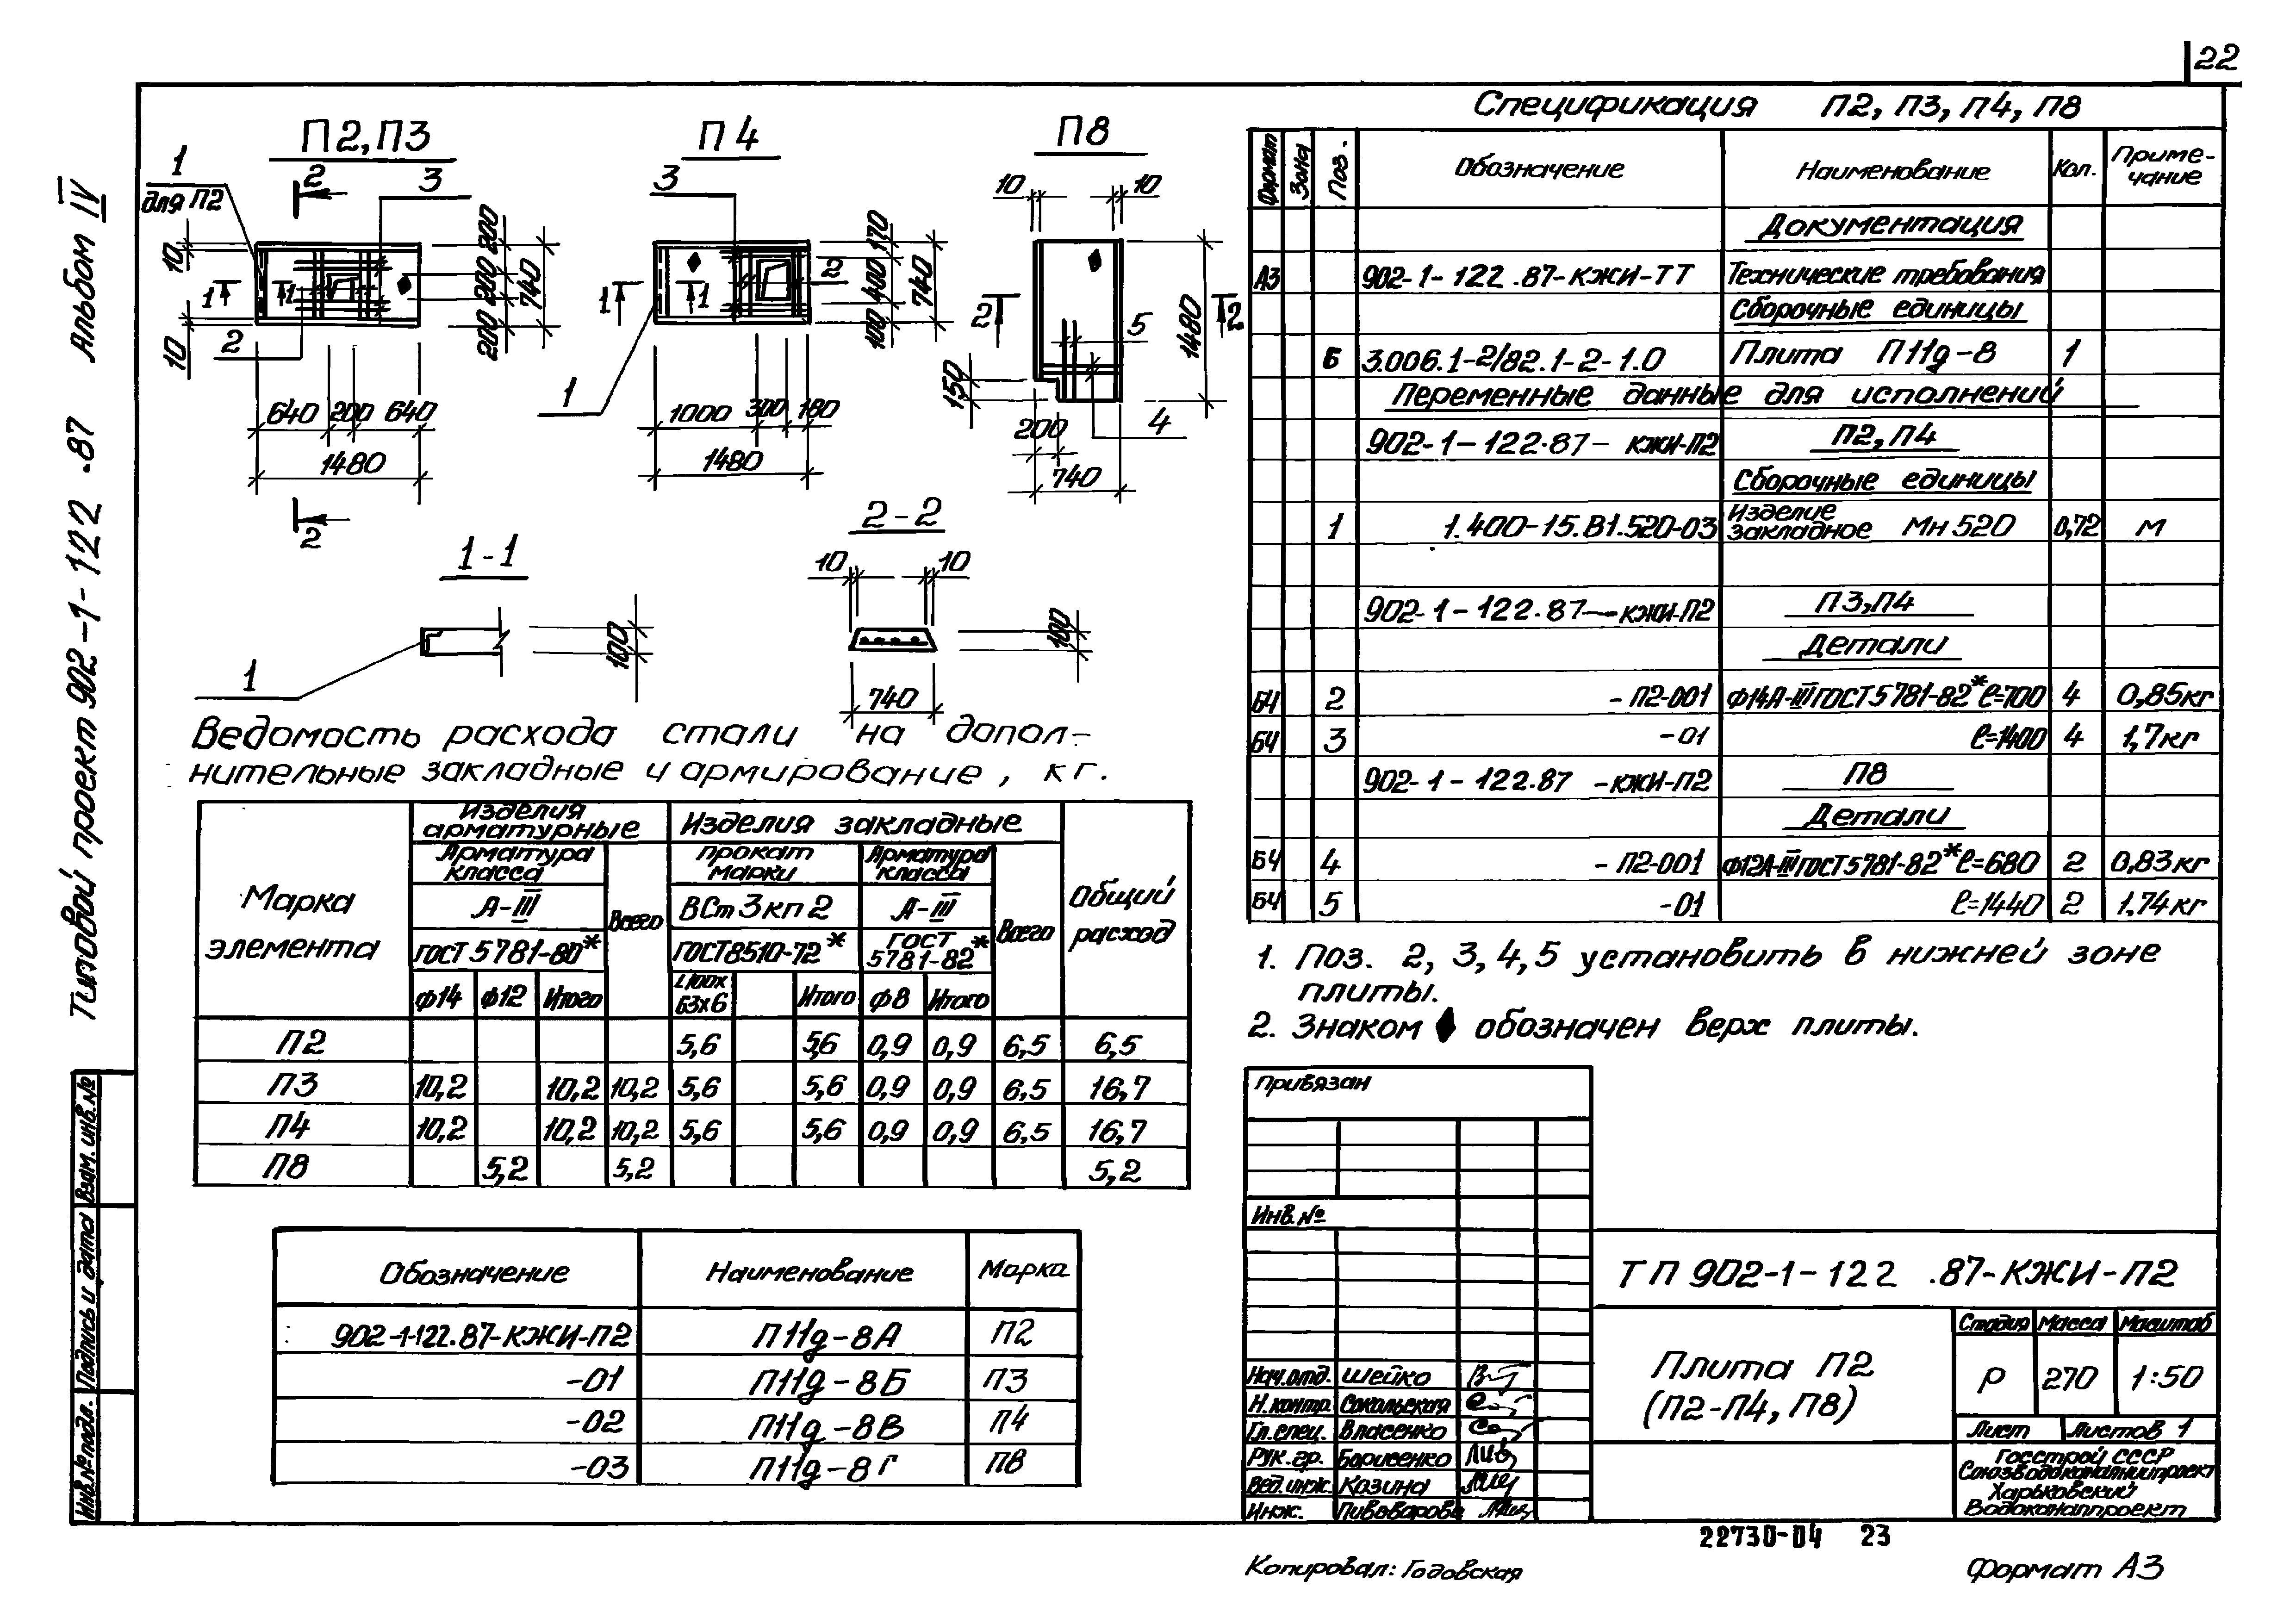 22
Типовой проект 902-1-122 .87 Альбом IV
П2, П3
П4
П8
1
для П2
2
3
10
10
200
200
200
740
1
1
2
640
200
640
1480
2
3
2
1
1
170
400
100
740
1
1000
300
180
1480
10
10
2
2
5
1480
150
200
4
740
1-1
1
100
2-2
10
10
100
740
Ведомость расхода стали на допол-
нительные закладные и армирование, кг.
Марка элемента
Изделия арматурные
Изделия закладные
Общий расход
Арматура класса
Всего
Прокат марки
Арматура класса
Всего
А-III
ВСт3кп2
А-III
ГОСТ 5781-80*
ГОСТ8510-72*
ГОСТ 5781-82*
Ф14 Ф12 Итого
L100х63х6 Итого Ф8 Итого
П2 5,6 5,6 0,9 0,9 6,5 6,5
П3 10,2 10,2 10,2 5,6 5,6 0,9 0,9 6,5 16,7
П4 10,2 10,2 10,2 5,6 5,6 0,9 0,9 6,5 16,7
П8 5,2 5,2 5,2
Обозначение Наименование Марка
902-1-122.87-КЖИ-П2 П11д-8А П2
-01 П11д-8Б П3
-02 П11д-8В П4
-03 П11д-8Г П8
Спецификация П2, П3, П4, П8
Формат Зона Поз. Обозначение Наименование Кол. Приме-чание
Документация
А3 902-1-122.87-КЖИ-ТТ Технические требования
Сборочные единицы
Б 3.006.1-2/82.1-2-1.0 Плита П11д-8 1
Переменные данные для исполнений
902-1-122.87- КЖИ-П2 П2, П4
Сборочные единицы
1 1.400-15.В1.520-03 Изделие закладное Мн 520 0,72 м
902-1-122.87-КЖИ-П2 П3, П4
Детали
БЧ 2 -П2-001 Ф14А-III ГОСТ5781-82* ℓ=700 4 0,85кг
БЧ 3 -01 ℓ=1400 4 1,7кг
902-1-122.87 -КЖИ-П2 П8
Детали
БЧ 4 -П2-001 Ф12А-III ГОСТ5781-82* ℓ=680 2 0,83кг
БЧ 5 -01 ℓ=1440 2 1,74кг
1. Поз. 2, 3, 4, 5 установить в нижней зоне
плиты.
2. Знаком ♦ обозначен верх плиты.
Привязан
Инв.№
ТП 902-1-122 .87-КЖИ-П2
Плита П2
(П2-П4, П8)
Стадия Масса Масштаб
Р 270 1:50
Лист Листов 1
Госстрой СССР
Союзводоканалниипроект
Харьковский
Водоканалпроект
Нач.отд. Шейко
Н.контр. Сокольская
Гл.спец. Власенко
Рук.гр. Борисенко
Вед.инж. Козина
Инж. Пивоварова
Взам. инв.№
Подпись и дата
Инв.№ подл.
22730-04 23
Копировал: Годовская
Формат А3